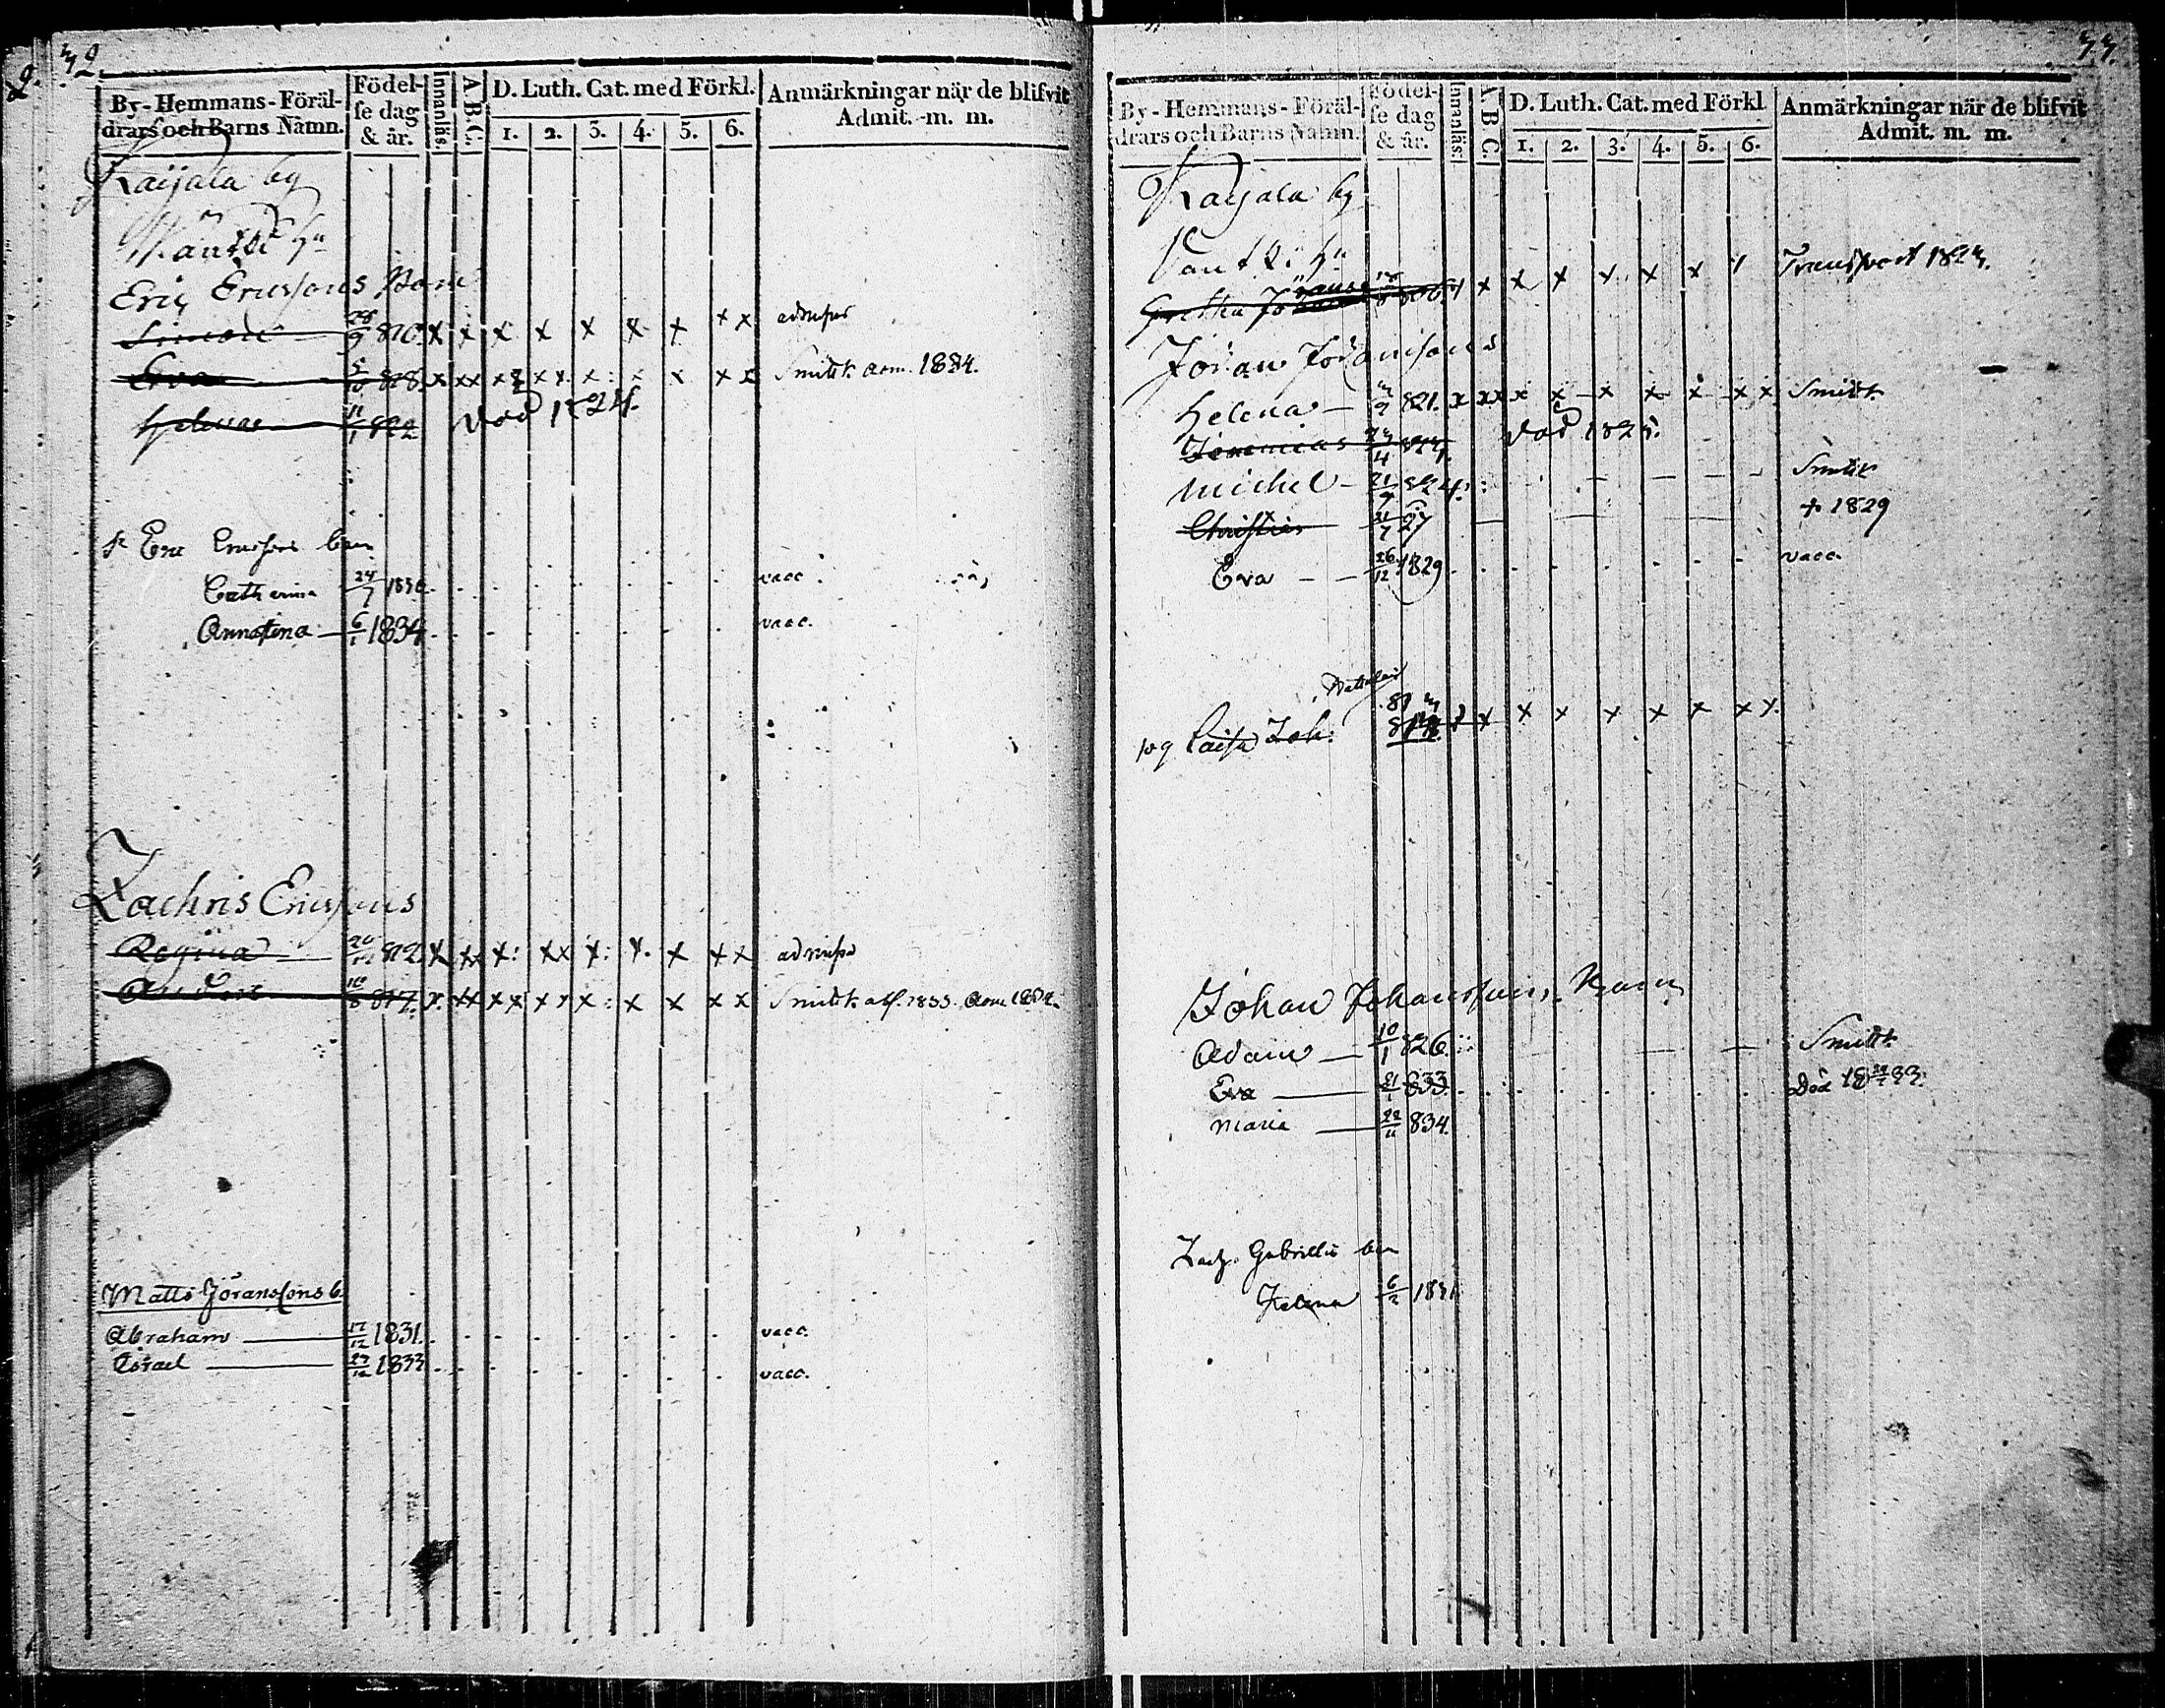 32.
By-Hemmans-Föräl-
drars och Barns Namn.
Födel-
se dag
& år.
Innanläs.
A.B.C.
D. Luth. Cat. med Förkl.
1. 2. 3. 4. 5. 6.
Anmärkningar när de blifvit
Admit. m. m.
Raijala by
Eric Ericssons Barn
Simon 28/9 810. x x x x x x x x x admiss
Eva 5/10 818. x xx x x x x x x x x Smitk. adm. 1834.
Helena 11/1 822 död 1824.
Eric Ericssons barn
Catharina 24/7 1830 vacc.
Annastina 6/1 1834 vacc.
Zachris Ericssons
Regina 812 x xx x: xx x: x. x xx admiss
Anders 10/8 817. x. xx xx xx x: x x xx Smitk. 1833.
Matts Göranssons b.
Abraham 17/12 1831. vacc.
Israel 23/12 1833 vacc.
33.
By-Hemmans-Föräl-
drars och Barns Namn.
Födel-
se dag
& år.
Innanläs.
A B C.
D. Luth. Cat. med Förkl
1. 2. 3. 4. 5. 6.
Anmärkningar när de blifvit
Admit. m. m.
Raijala by
Gretha x x x x x x Transport 1823.
Jöran Jöranssons
Helena 3/9 821. x xx x x x x x x x Smitk
Jeremias 23/4 823. död 1825.
Michel 21/9 824. Smitk
Christian 21/7 27 + 1829
Eva 26/12 1829 vacc.
pig Caisa Joh. x x x x x x x x
Johan Johanssons Barn
Adam 10/1 826. Smitk
Eva 21/1 833. Död
Maria 22/11 834.
Zach. Gabriels barn
Helena 6/2 1831